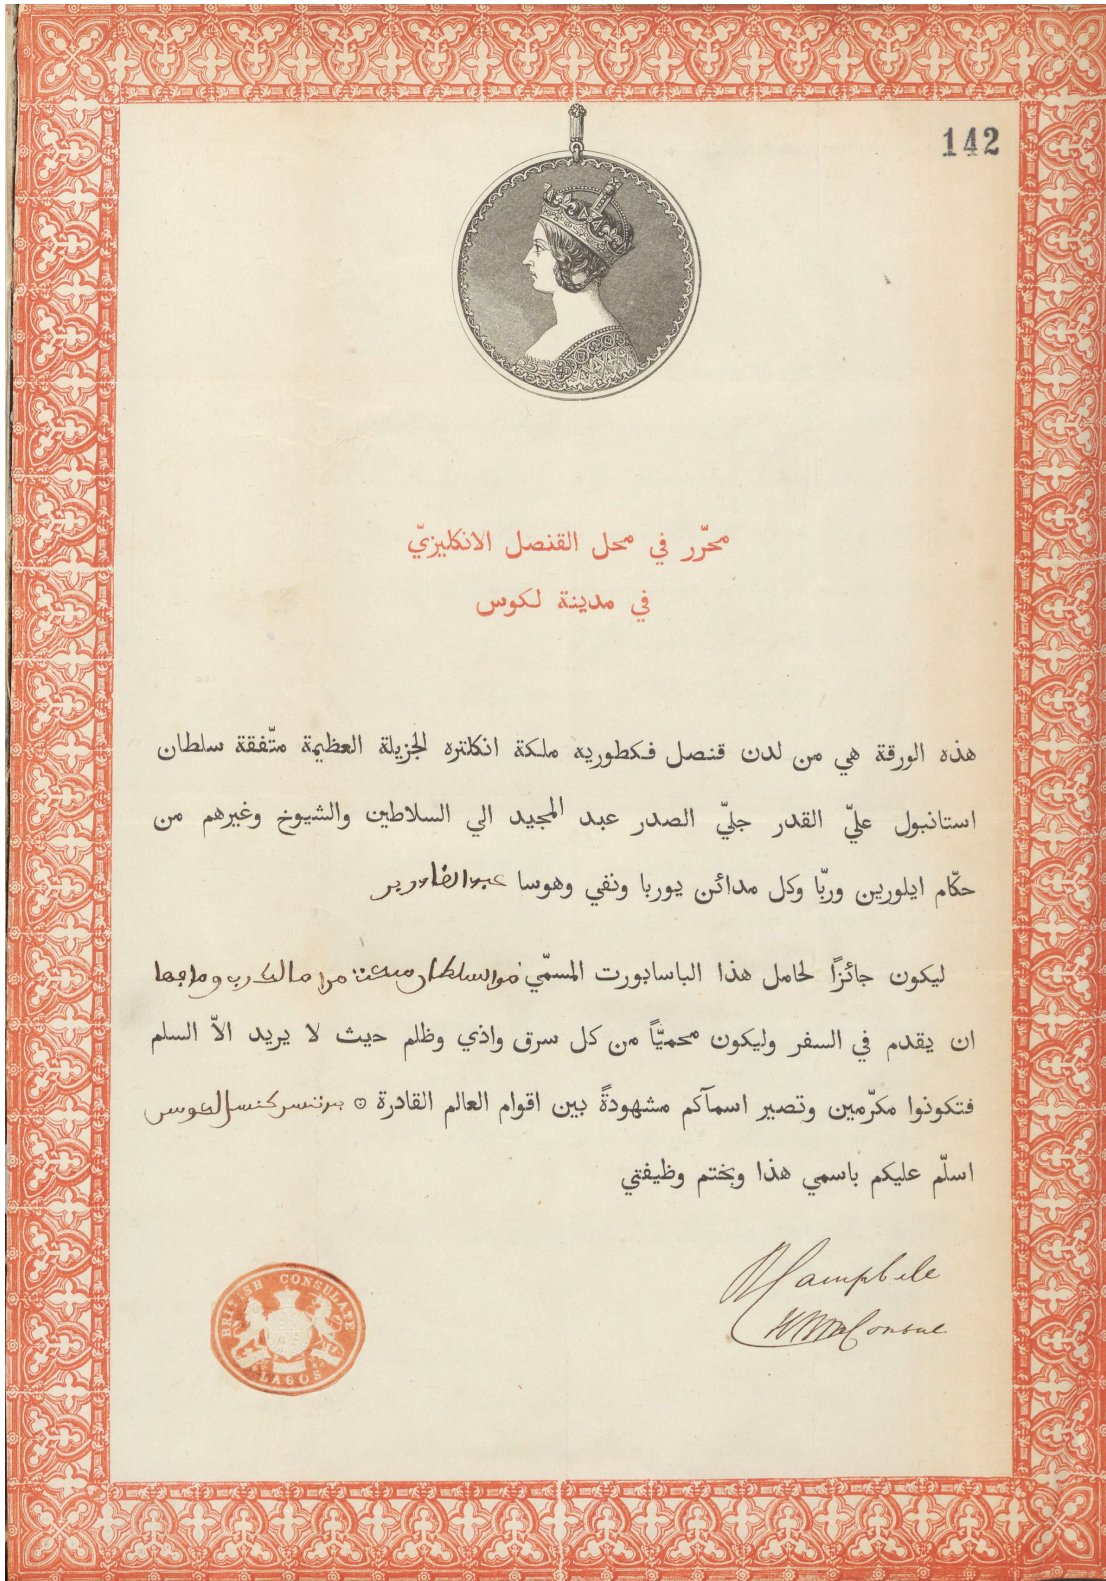 142
محرّر في محل القنصل الانكليزيّ
في مدينة لكوس
هذه الورقة هي من لدن قنصل فكطوريه ملكة انكلتره الجزيلة العظيمة متّفقة سلطان
استانبول عليّ القدر جليّ الصدر عبد المجيد الي السلاطين والشيوخ وغيرهم من
حكّام ايلورين وربّا وكل مدائن يوربا ونفي وهوسا
ليكون جائزًا لحامل هذا الباسابورت المسمّي
ان يقدم في السفر وليكون محميًّا من كل سرق واذي وظلم حيث لا يريد الاّ السلم
فتكونوا مكرّمين وتصير اسمآكم مشهودةً بين اقوام العالم القادرة
اسلّم عليكم باسمي هذا وبختم وظيفتي
Campbell
Consul
BRITISH CONSULATE
LAGOS